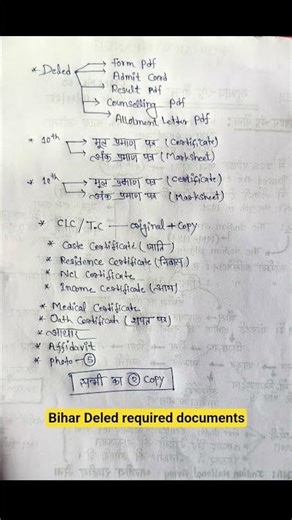 Form Pdf
* Deled
Admit Card
Result Pdf
Counselling Pdf
Allotment Letter Pdf
* 10th
मूल प्रमाण पत्र (Certificate)
अंक प्रमाण पत्र (Marksheet)
* 12th
मूल प्रमाण पत्र (Certificate)
अंक प्रमाण पत्र (Marksheet)
* CLC/T.C original + copy
* Caste Certificate (जाति)
* Residence Certificate (निवास)
* NCL Certificate
* Income Certificate (आय)
* Medical Certificate
* Oath Certificate (शपत पत्र)
* आधार
* Affidavit
* photo - 5
सभी का 2 copy
Bihar Deled required documents